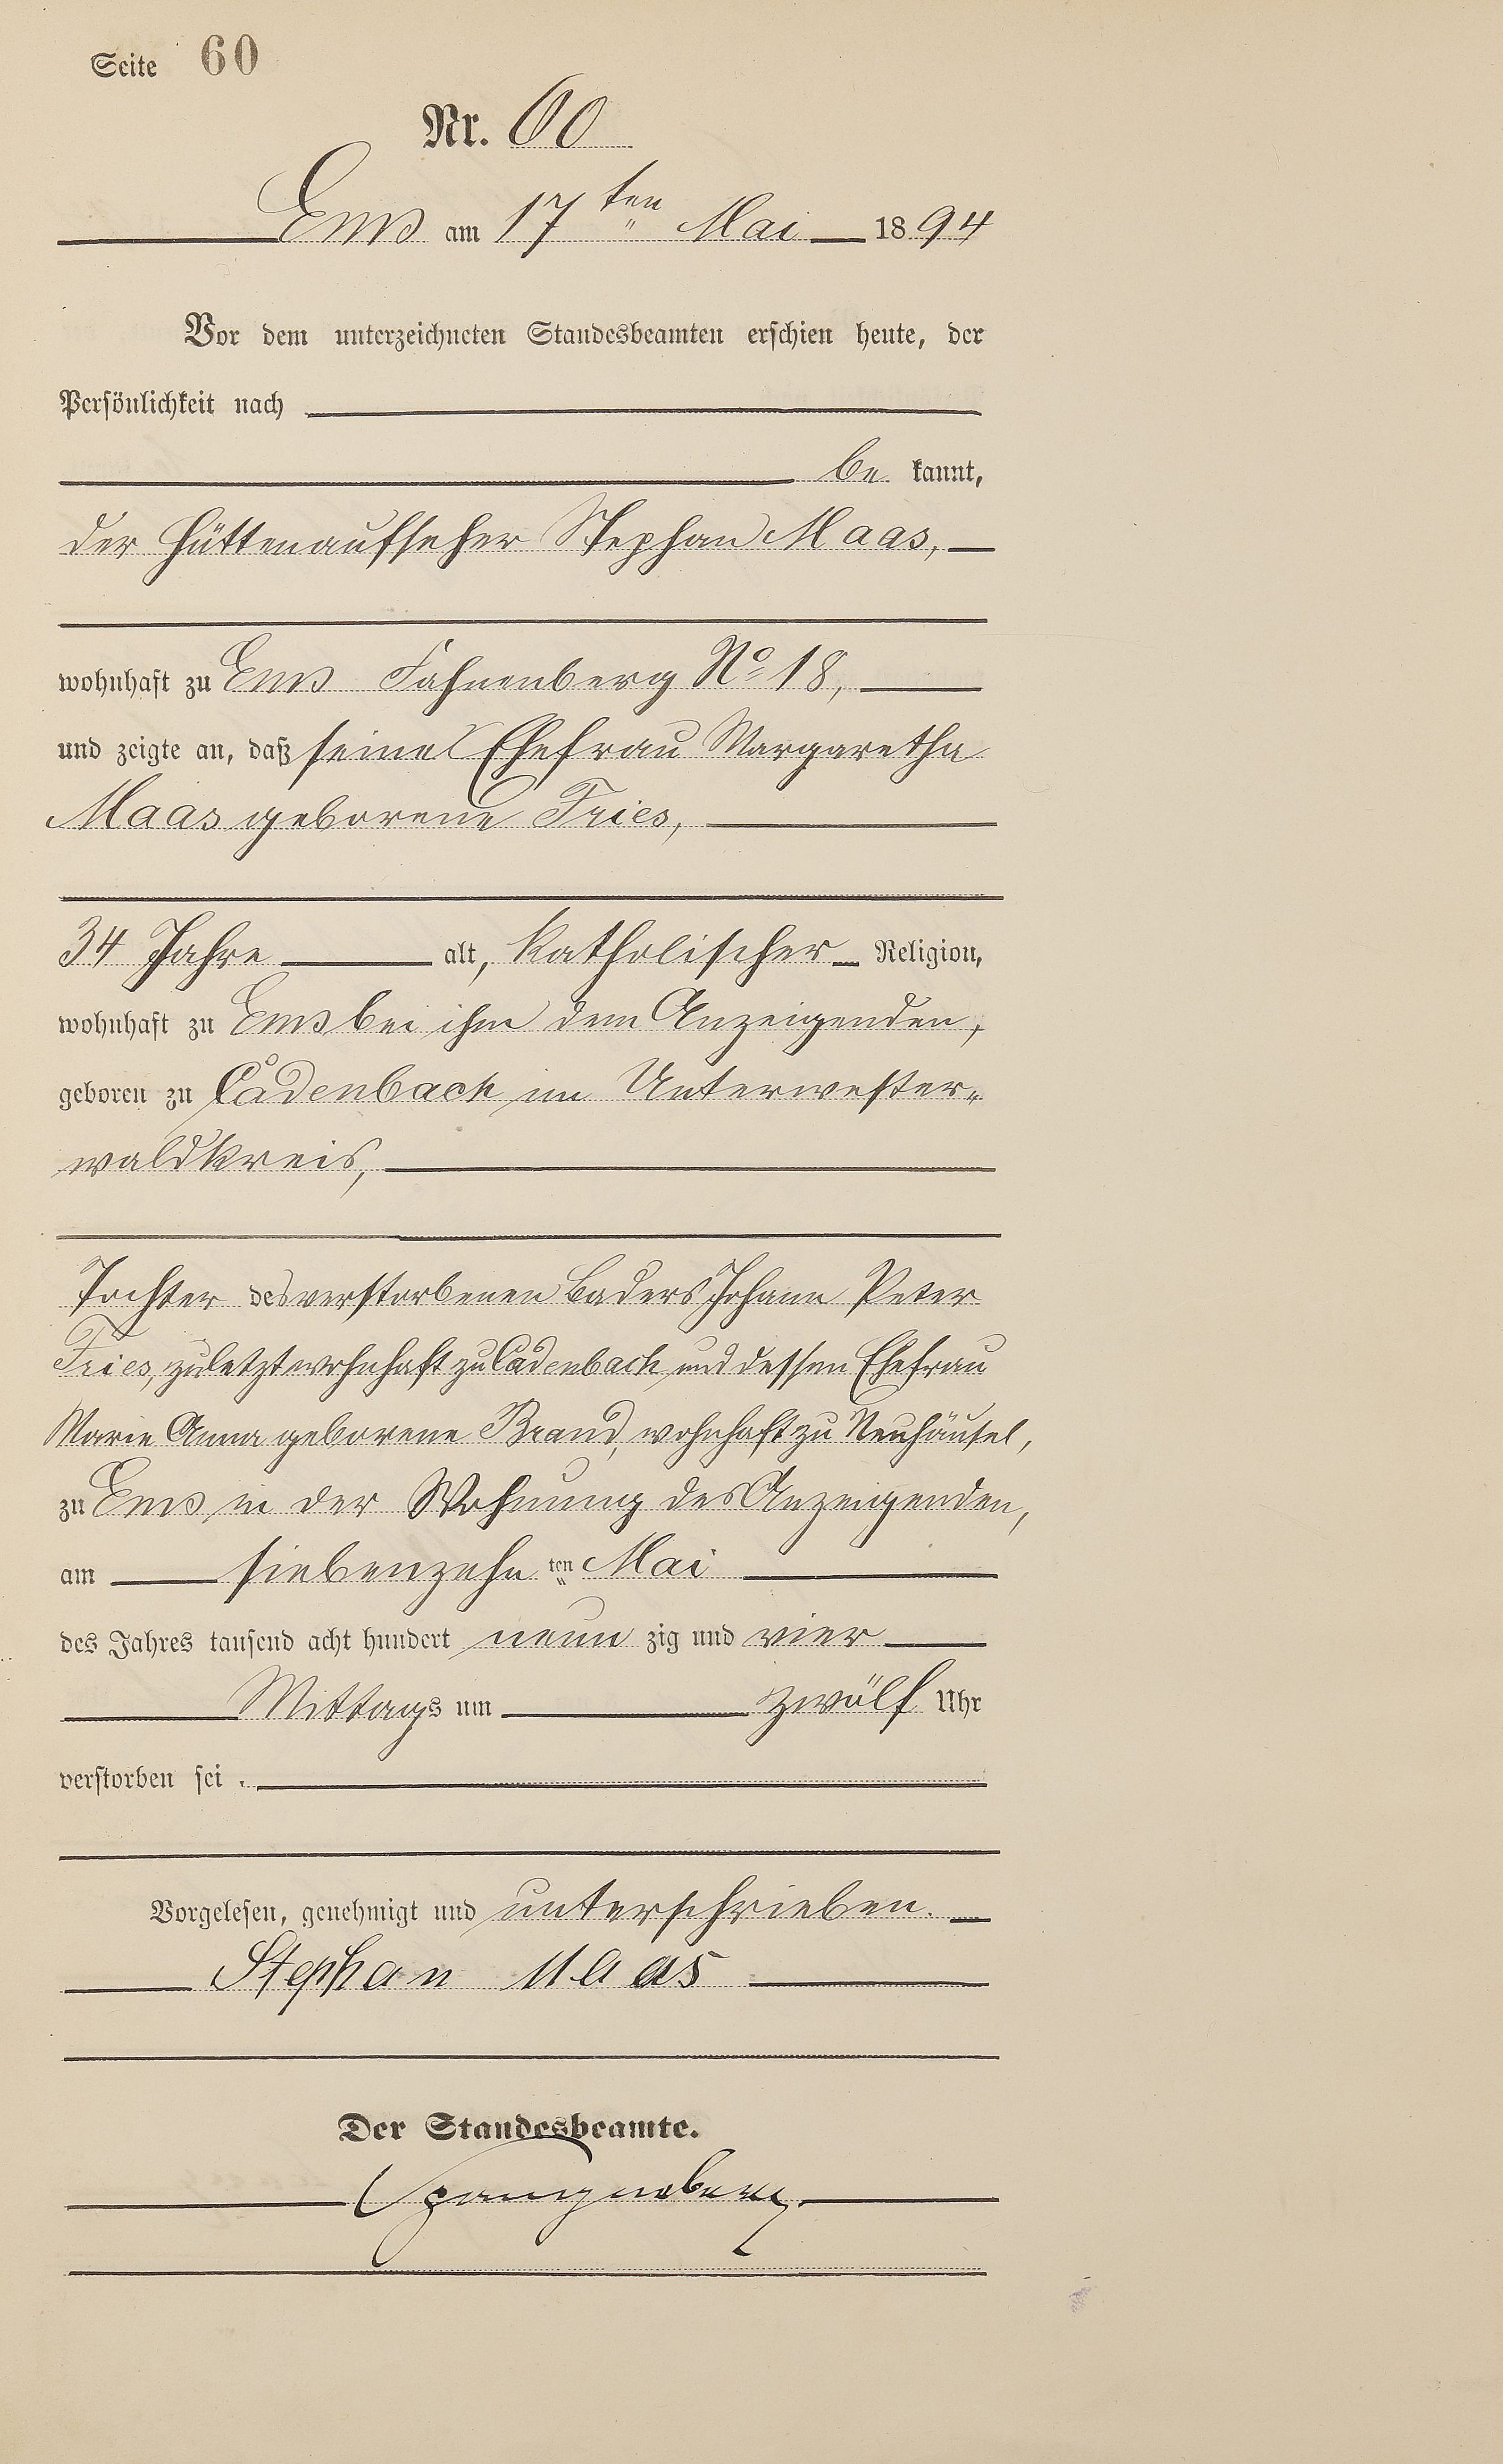 Seite 60
Nr. 60
Ems am 17ten Mai 1894
Vor dem unterzeichneten Standesbeamten erschien heute, der
Persönlichkeit nach
be kannt,
der Hüttenaufseher Stephan Maas,
wohnhaft zu Ems Fahnenberg No 18,
und zeigte an, daß seine Ehefrau Margaretha
Maas geborene Fries,
34 Jahre alt, katholischer Religion,
wohnhaft zu Ems bei ihm dem Anzeigenden,
geboren zu Cadenbach im Unterwester„
waldkreis,
Tochter des verstorbenen Baders Johann Peter
Fries, zuletzt wohnhaft zu Cadenbach und dessen Ehefrau
Marie Anna geborene Brand, wohnhaft zu Neuhäusel,
zu Ems in der Wohnung des Anzeigenden,
am siebenzehn ten Mai
des Jahres tausend acht hundert neun zig und vier
Mittags um zwölf Uhr
verstorben sei.
Vorgelesen, genehmigt und unterschrieben.
Stephan Maas
Der Standesbeamte.
Spangenberg.